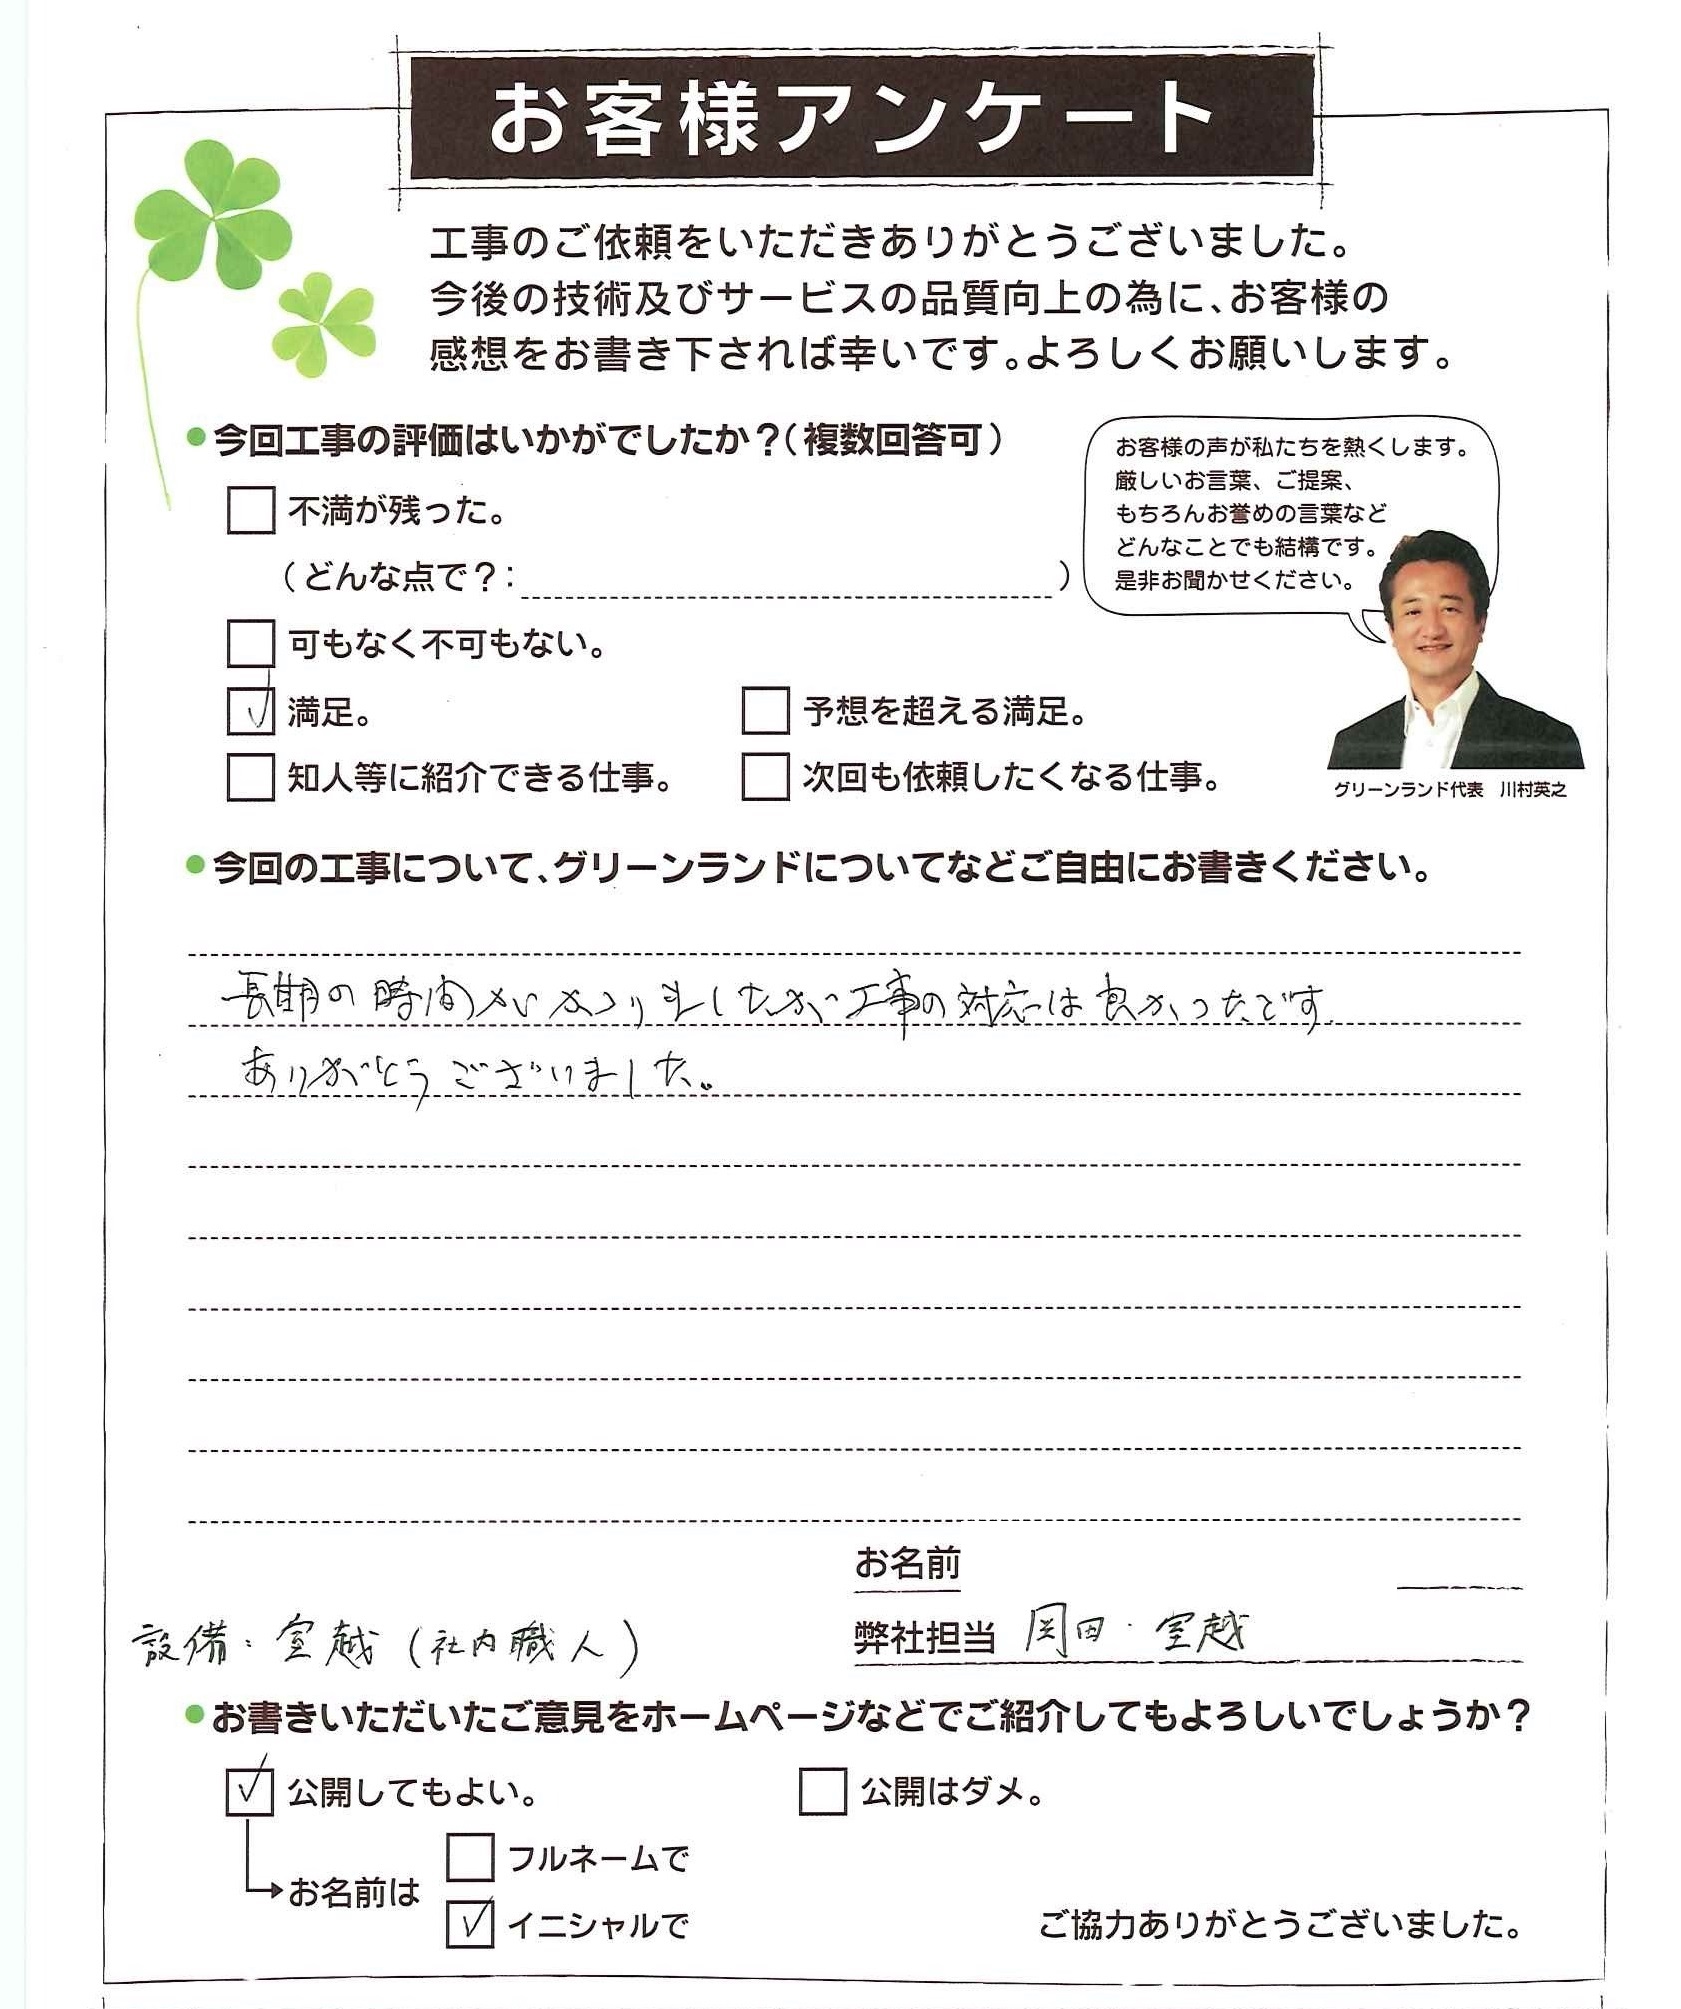 お客様アンケート
工事のご依頼をいただきありがとうございました。
今後の技術及びサービスの品質向上の為に、お客様の
感想をお書き下されば幸いです。よろしくお願いします。
●今回工事の評価はいかがでしたか？（複数回答可）
不満が残った。
（どんな点で？： ）
可もなく不可もない。
満足。
予想を超える満足。
知人等に紹介できる仕事。
次回も依頼したくなる仕事。
お客様の声が私たちを熱くします。
厳しいお言葉、ご提案、
もちろんお誉めの言葉など
どんなことでも結構です。
是非お聞かせください。
グリーンランド代表　川村英之
●今回の工事について、グリーンランドについてなどご自由にお書きください。
長期の時間がかつりましたが工事の対応は良かったです
ありがとうございました。
お名前
設備：室越（社内職人）
弊社担当 岡田・室越
●お書きいただいたご意見をホームページなどでご紹介してもよろしいでしょうか？
公開してもよい。
公開はダメ。
お名前は
フルネームで
イニシャルで
ご協力ありがとうございました。